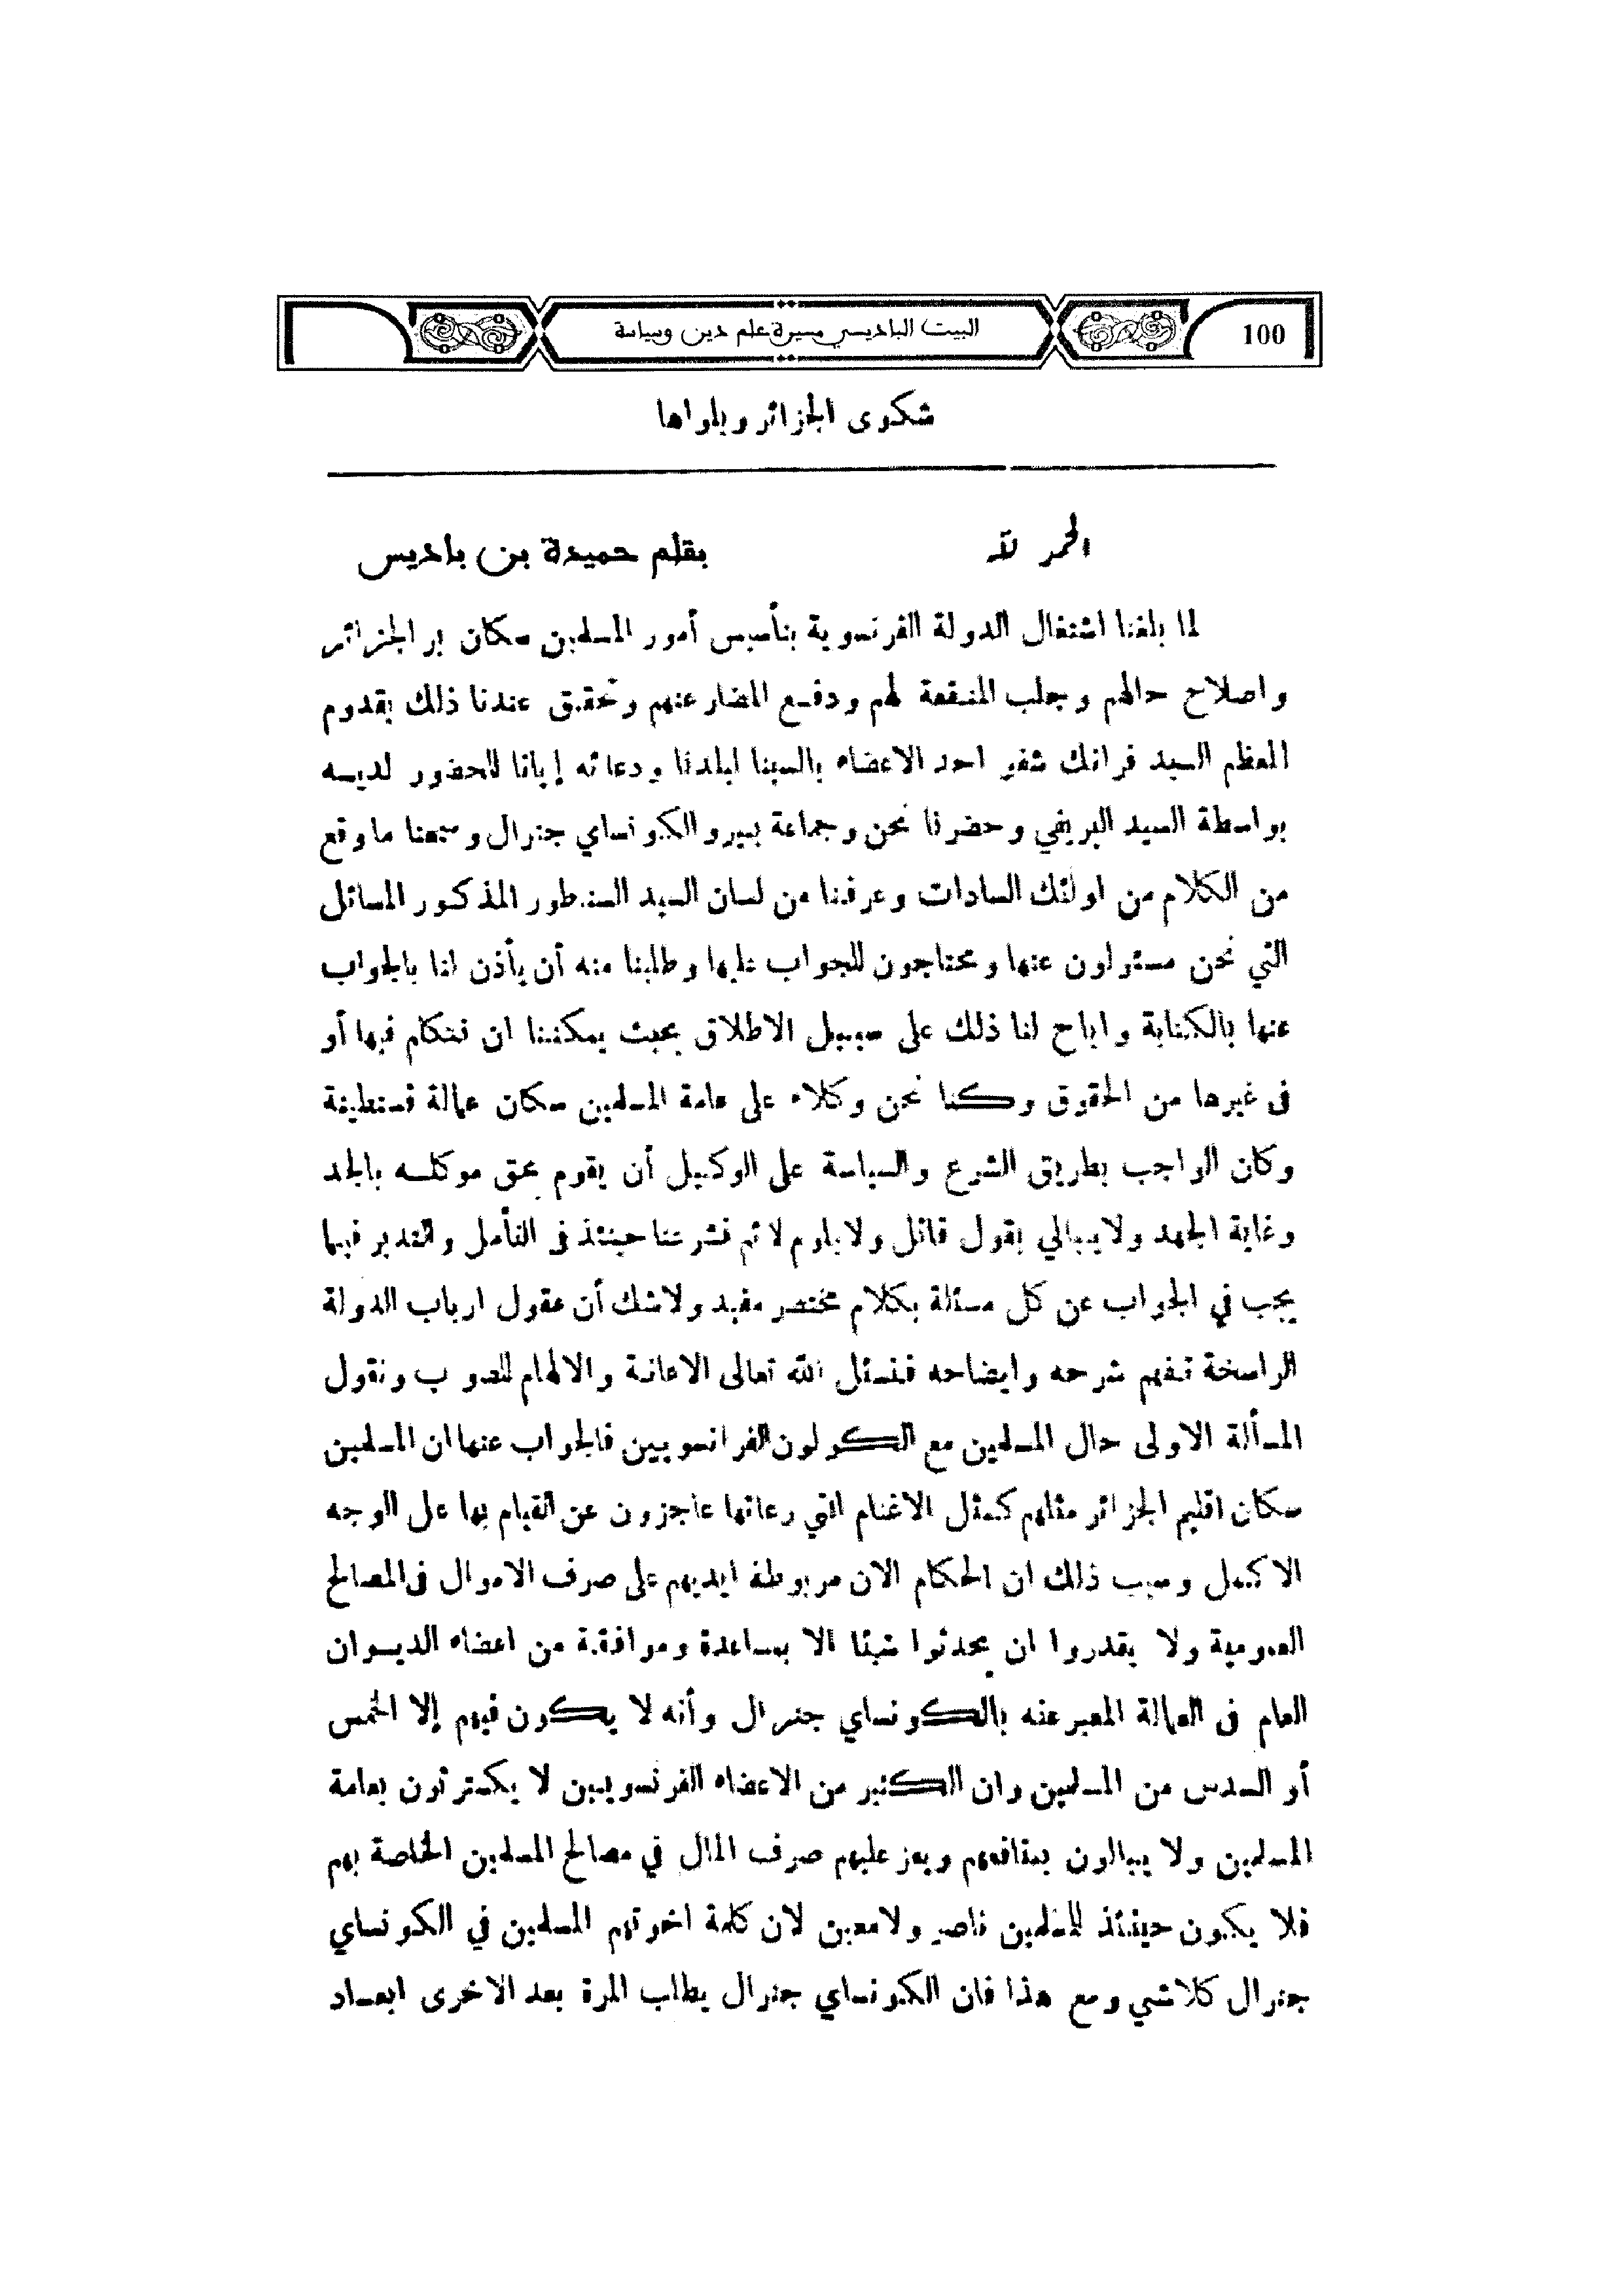 100
البيت الباديسي مسيرة علم دين وسياسة
شكوى الجزائر وبلواها
الحمد لله
بقلم حميدة بن باديس
لما بلغنا اشتغال الدولة الفرنسوية بتأسيس أمور المسلمين سكان بر الجزائر
واصلاح حالهم وجلب المنفعة لهم ودفع المضار عنهم وتحقيق عندنا ذلك بقدوم
المعظم السيد فرانك شفير احد الاعضاء بالسينا لبلدنا ودعائه إيانا للحضور لديه
بواسطة السيد البريفي وحضرنا نحن وجماعة بيرو الكونساي جنرال وسمعنا ما وقع
من الكلام من اولئك السادات وعرفنا من لسان السيد السنطور المذكور المسائل
التي نحن مسئولون عنها ومحتاجون للجواب عليها وطلبنا منه أن يأذن لنا بالجواب
عنها بالكتابة واباح لنا ذلك على سبيل الاطلاق بحيث يمكننا ان نتكلم فيها أو
فى غيرها من الحقوق وكنا نحن وكلاء على عامة المسلمين سكان عمالة قسنطينة
وكان الواجب بطريق الشرع والسياسة على الوكيل أن يقوم بحق موكله بالجد
وغاية الجهد ولا يبالي بقول قائل ولا بلوم لائم فشرعنا حينئذ فى التأمل والتدبر فيما
يجب في الجواب عن كل مسئلة بكلام مختصر مفيد ولا شك أن عقول ارباب الدولة
الراسخة تفهم شرحه وايضاحه فنسئل الله تعالى الاعانة والالهام للصوب ونقول
المسألة الاولى حال المسلمين مع الكولون الفرانسويين فالجواب عنها ان المسلمين
سكان اقليم الجزائر مثلهم كمثل الاغنام التي رعاتها عاجزون عن القيام بها على الوجه
الاكمل وسبب ذلك ان الحكام الان مربوطة ايديهم على صرف الاموال فى المصالح
العمومية ولا يقدروا ان يحدثوا شيئا الا بمساعدة وموافقة من اعضاء الديوان
العام فى العمالة المعبر عنه بالكونساي جنرال وأنه لا يكون فيهم إلا الخمس
أو السدس من المسلمين وان الكثير من الاعضاء الفرنسويين لا يكترثون بعامة
المسلمين ولا يبالون بمنافعهم ويعز عليهم صرف المال في مصالح المسلمين الخاصة بهم
فلا يكون حينئذ للمسلمين ناصر ولا معين لان كلمة اخوتهم المسلمين في الكونساي
جنرال كلاشي ومع هذا فان الكونساي جنرال يطلب المرة بعد الاخرى ابعاد